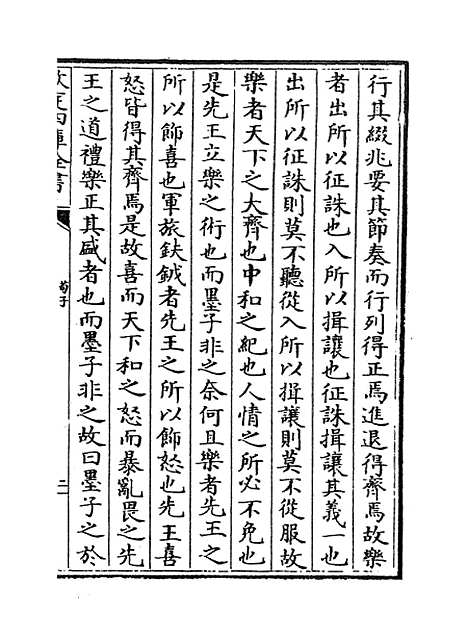 行其綴兆要其節奏而行列得正焉進退得齊焉故樂
者出所以征誅也入所以揖讓也征誅揖讓其義一也
出所以征誅則莫不聽從入所以揖讓則莫不從服故
樂者天下之大齊也中和之紀也人情之所必不免也
是先王立樂之術也而墨子非之奈何且樂者先王之
所以飾喜也軍旅鈇鉞者先王之所以飾怒也先王喜
怒皆得其齊焉是故喜而天下和之怒而暴亂畏之先
王之道禮樂正其盛者也而墨子非之故曰墨子之於
欽定四庫全書
荀子
二